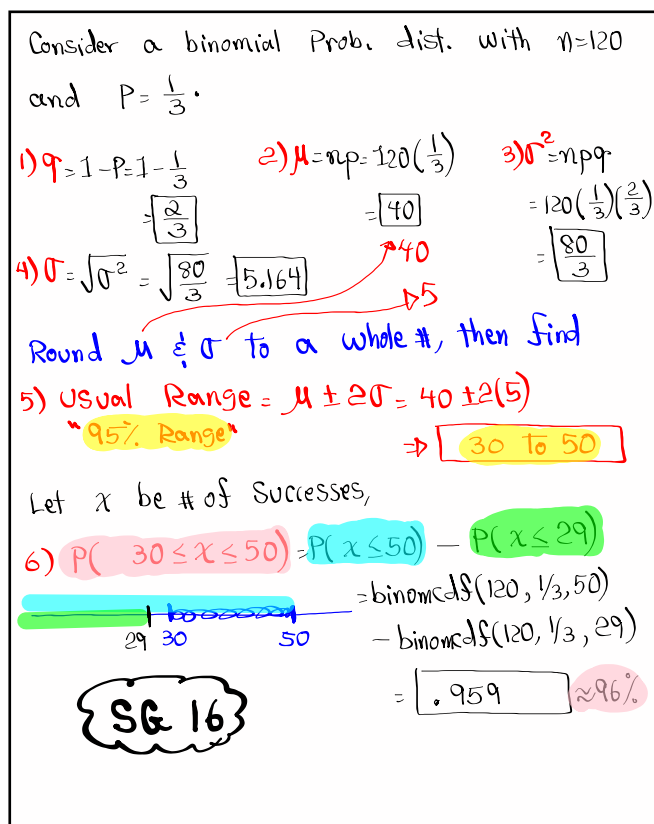 Consider a binomial Prob. dist. with n=120
and P= 1/3.
1) q=1-P=1-1/3
= 2/3
2) μ=np=120(1/3)
= 40
3) σ²=npq
=120(1/3)(2/3)
= 80/3
4) σ=√σ² = √80/3 = 5.164
40
5
Round μ & σ to a whole #, then find
5) Usual Range = μ ± 2σ = 40 ±2(5)
"95% Range"
⇒ 30 To 50
Let x be # of Successes,
6) P( 30≤x≤50) = P(x≤50) - P(x≤29)
=binomcdf(120, 1/3, 50)
- binomcdf(120, 1/3, 29)
29 30 50
= .959 ≈96%
SG 16